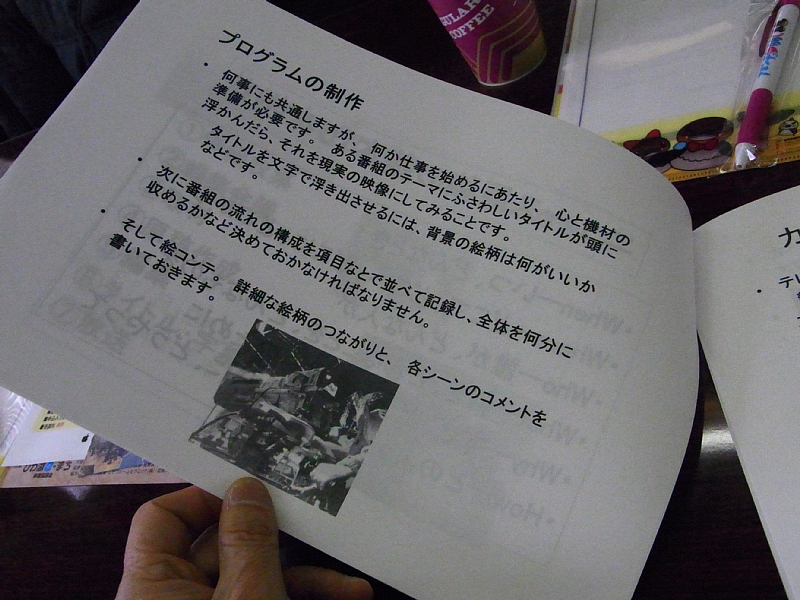 プログラムの制作
• 何事にも共通しますが、何か仕事を始めるにあたり、心と機材の
準備が必要です。ある番組のテーマにふさわしいタイトルが頭に
浮かんだら、それを現実の映像にしてみることです。
タイトルを文字で浮き出させるには、背景の絵柄は何がいいか
などです。
• 次に番組の流れの構成を項目などで並べて記録し、全体を何分に
収めるかなど決めておかなければなりません。
• そして絵コンテ。詳細な絵柄のつながりと、各シーンのコメントを
書いておきます。
COFFEE
カ
• テレ